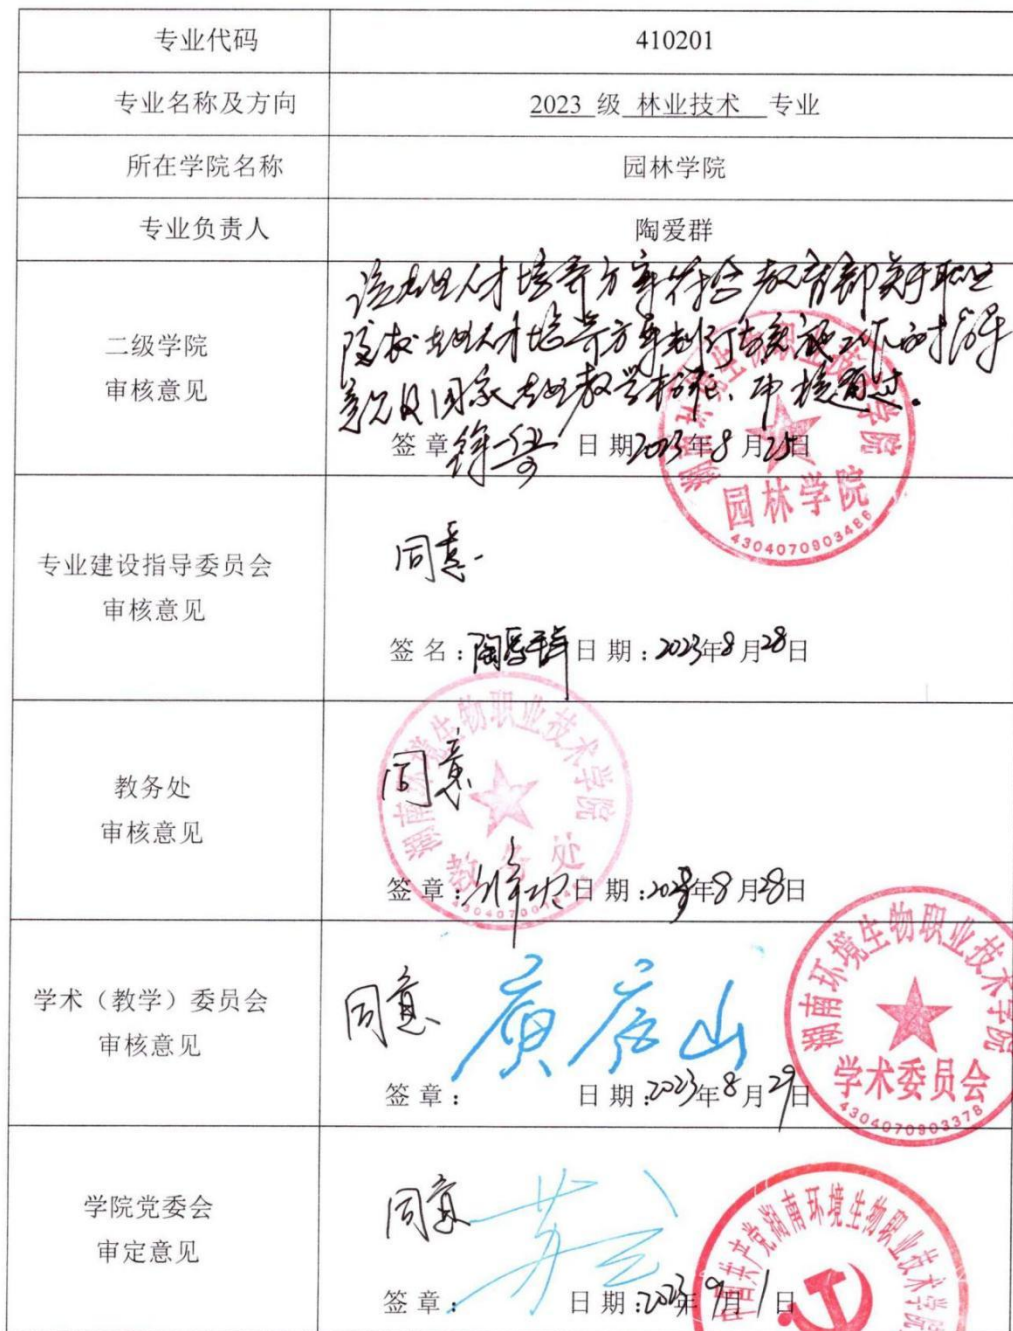 专业代码
410201
专业名称及方向
2023 级 林业技术 专业
所在学院名称
园林学院
专业负责人
陶爱群
二级学院
审核意见
该专业人才培养方案符合教育部关于职业
院校专业人才培养方案制订与实施工作的指导
意见及国家专业教学标准、审核通过。
签 章
日 期 2023年8月25日
湖南环境生物职业技术学院
园林学院
4304070903486
专业建设指导委员会
审核意见
同意
签 名：陶爱群 日 期：2023年8月28日
教务处
审核意见
同意
签 章：
日 期：2023年8月28日
湖南环境生物职业技术学院
教务处
学术（教学）委员会
审核意见
同意
签 章：
日 期：2023年8月29日
湖南环境生物职业技术学院
学术委员会
4304070903378
学院党委会
审定意见
同意
签 章：
日 期：2023年9月1日
中国共产党湖南环境生物职业技术学院